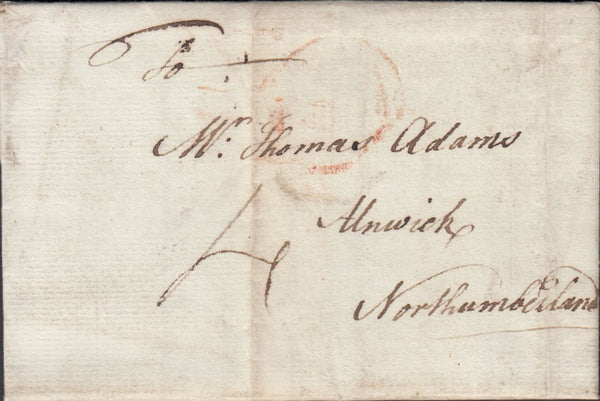 To
Mr. Thomas Adams
Alnwick
4
Northumberland